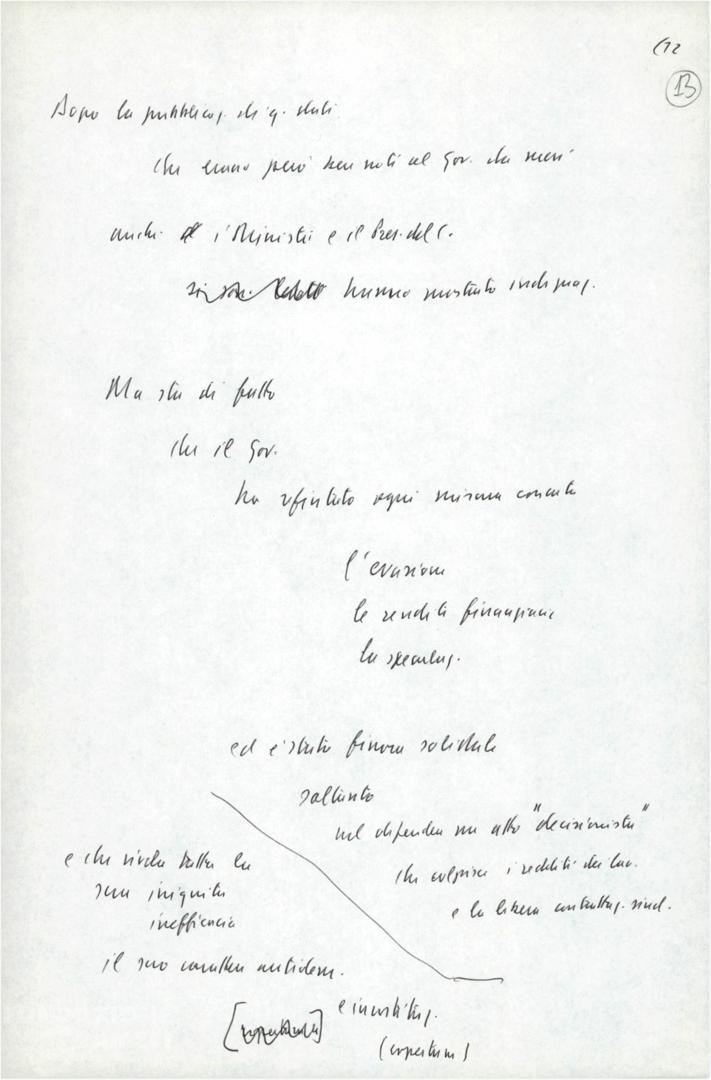 (12
13
Dopo la pubblicaz. di q. dati
che erano però ben noti al Gov. da mesi
anche i Ministri e il Pres. del C.
hanno mostrato indignaz.
Ma sta di fatto
che il Gov.
ha rifiutato ogni misura contro
l'evasione
le rendite finanziarie
la speculaz.
ed è stato finora solidale
soltanto
nel difendere un atto "decisionista"
che colpisce i redditi da lav.
e la libera contrattaz. sind.
e che rivela tutta la
sua iniquità
inefficacia
il suo carattere antidem.
e incostituz.
(copertura)